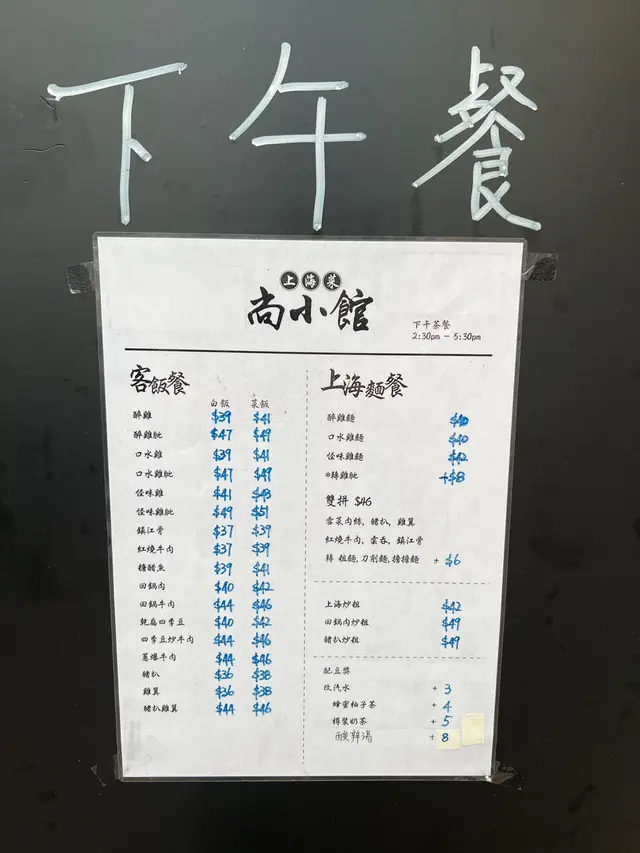 下午餐
上海菜
尚小館
下午茶餐
2:30pm - 5:30pm
客飯餐
白飯 菜飯
醉雞 $39 $41
醉雞髀 $47 $49
口水雞 $39 $41
口水雞髀 $47 $49
怪味雞 $41 $43
怪味雞髀 $49 $51
鎮江骨 $37 $39
紅燒牛肉 $37 $39
糖醋魚 $39 $41
回鍋肉 $40 $42
回鍋牛肉 $44 $46
乾扁四季豆 $40 $42
四季豆炒牛肉 $44 $46
蔥爆牛肉 $44 $46
豬扒 $36 $38
雞翼 $36 $38
豬扒雞翼 $44 $46
上海麵餐
醉雞麵 $40
口水雞麵 $40
怪味雞麵 $42
*轉雞髀 +$8
雙拼 $46
雪菜肉絲, 豬扒, 雞翼
紅燒牛肉, 雲吞, 鎮江骨
轉 粗麵, 刀削麵, 擔擔麵 + $6
上海炒粗 $42
回鍋肉炒粗 $49
豬扒炒粗 $49
配豆漿
改汽水 + 3
蜂蜜柚子茶 + 4
樽裝奶茶 + 5
酸辣湯 + 8